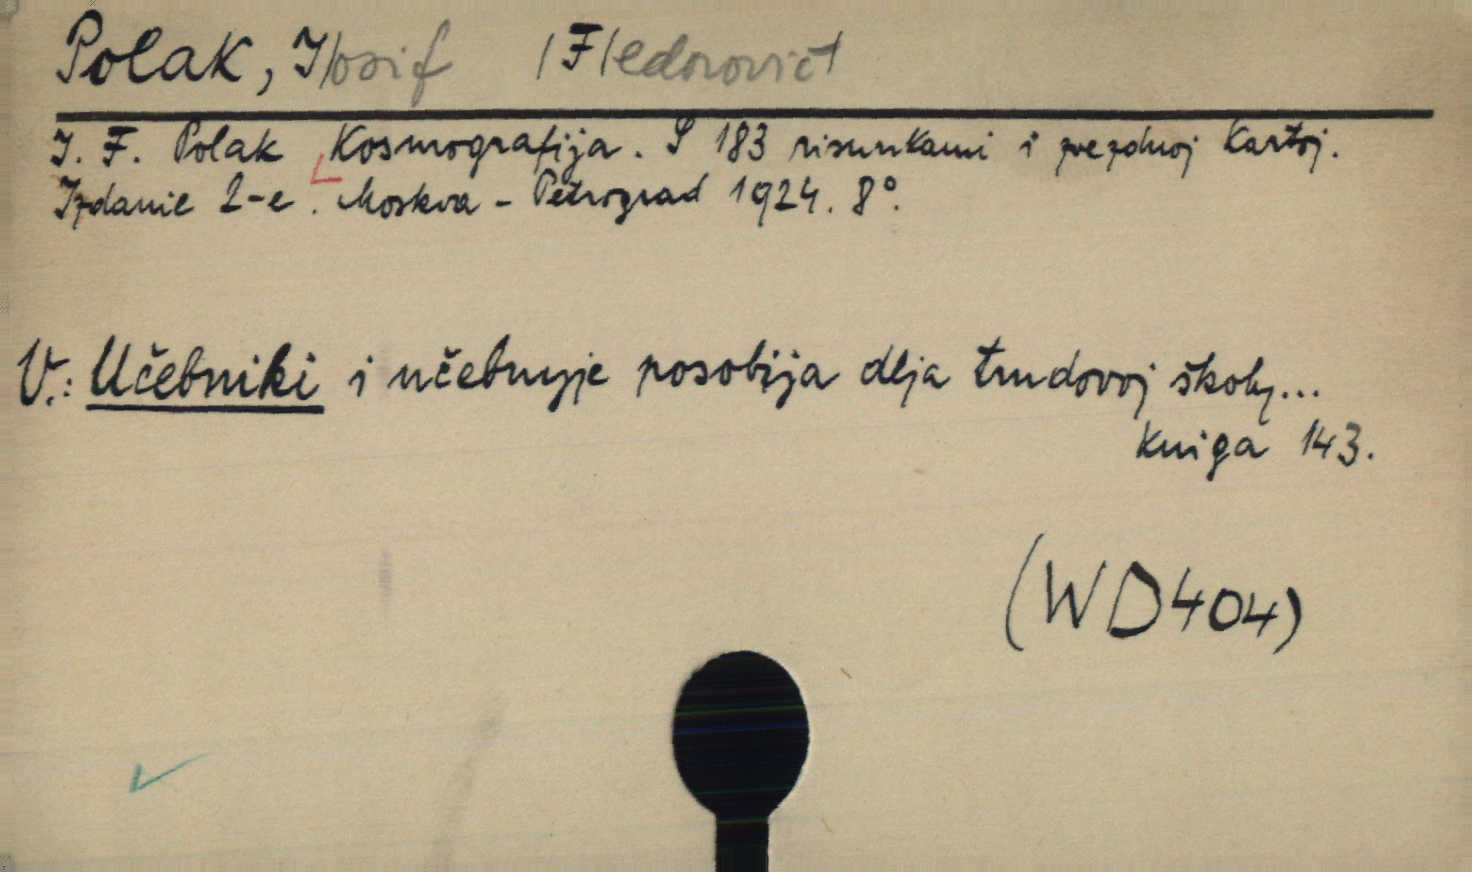 Polak, I/osif /F/edorovič/
I. F. Polak Kosmografija. S 183 risunkami i zvezdnoj kartoj.
Izdanie 2-e. Moskva - Petrograd 1924. 8°.
V.: Učebniki i učebnyje posobija dlja trudovoj školy...
kniga 143.
(WD404)